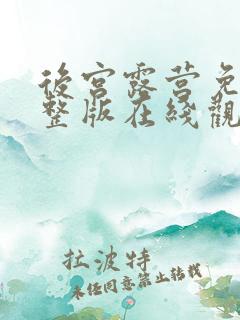 後宮露营免
整版在綫觀
拉波特
未经同意禁止转载